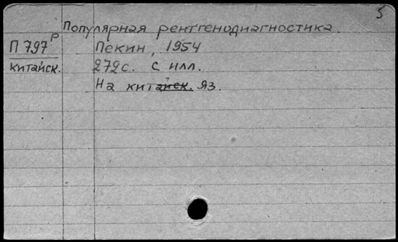 5
Популярная рентгенодиагностика.
П 797р Пекин, 1954
китайск. 272 с. с илл.
На китайск. яз.